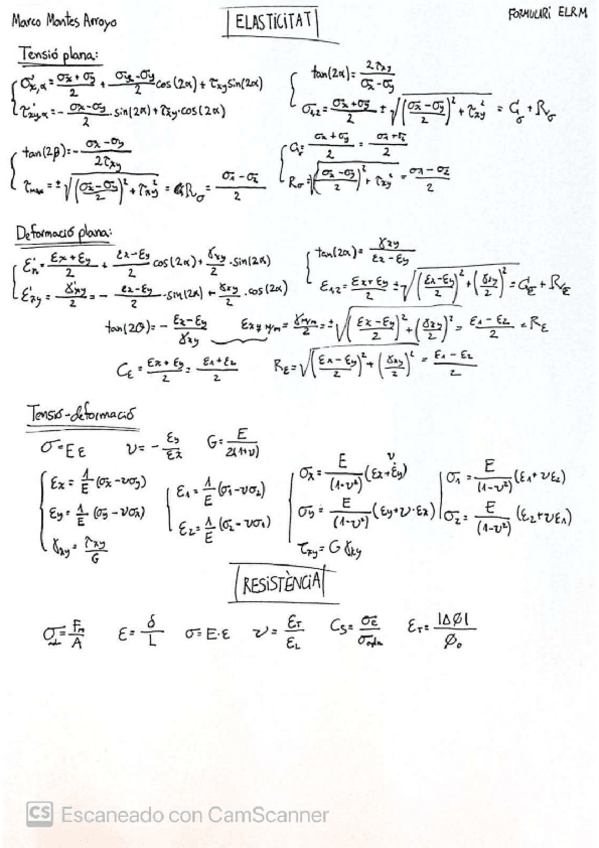 Marco Montes Arroyo
ELASTICITAT
FORMULARI ELRM
Tensió plana:
σ'x,α = (σx+σy)/2 + (σx-σy)/2 cos(2α) + τxy sin(2α)
τ'xy,α = - (σx-σy)/2 · sin(2α) + τxy · cos(2α)
tan(2α) = 2τxy/(σx-σy)
σ1,2 = (σx+σy)/2 ± √(((σx-σy)/2)² + τxy²) = Cσ + Rσ
tan(2β) = - (σx-σy)/(2τxy)
τmax = ± √(((σx-σy)/2)² + τxy²) = Rσ = (σ1-σ2)/2
Cσ = (σx+σy)/2 = (σ1+σ2)/2
Rσ = √(((σx-σy)/2)² + τxy²) = (σ1-σ2)/2
Deformació plana:
ε'n = (εx+εy)/2 + (εx-εy)/2 cos(2α) + γxy/2 · sin(2α)
ε'xy = γ'xy/2 = - (εx-εy)/2 · sin(2α) + γxy/2 · cos(2α)
tan(2α) = γxy/(εx-εy)
ε1,2 = (εx+εy)/2 ± √(((εx-εy)/2)² + (γxy/2)²) = Cε + Rε
tan(2θ) = - (εx-εy)/γxy
εxy M/m = γM/m/2 = ± √(((εx-εy)/2)² + (γxy/2)²) = (ε1-ε2)/2 = Rε
Cε = (εx+εy)/2 = (ε1+ε2)/2
Rε = √(((εx-εy)/2)² + (γxy/2)²) = (ε1-ε2)/2
Tensió-deformació
σ = Eε
ν = - εy/εx
G = E/(2(1+ν))
εx = 1/E (σx-νσy)
εy = 1/E (σy-νσx)
γxy = τxy/G
ε1 = 1/E (σ1-νσ2)
ε2 = 1/E (σ2-νσ1)
σx = E/(1-ν²) (εx+νεy)
σy = E/(1-ν²) (εy+ν·εx)
τxy = G γxy
σ1 = E/(1-ν²) (ε1+νε2)
σ2 = E/(1-ν²) (ε2+νε1)
RESISTÈNCIA
σadm = Fm/A
ε = δ/L
σ = E·ε
ν = εT/εL
CS = σE/σadm
εT = |ΔØ|/Ø0
CS Escaneado con CamScanner